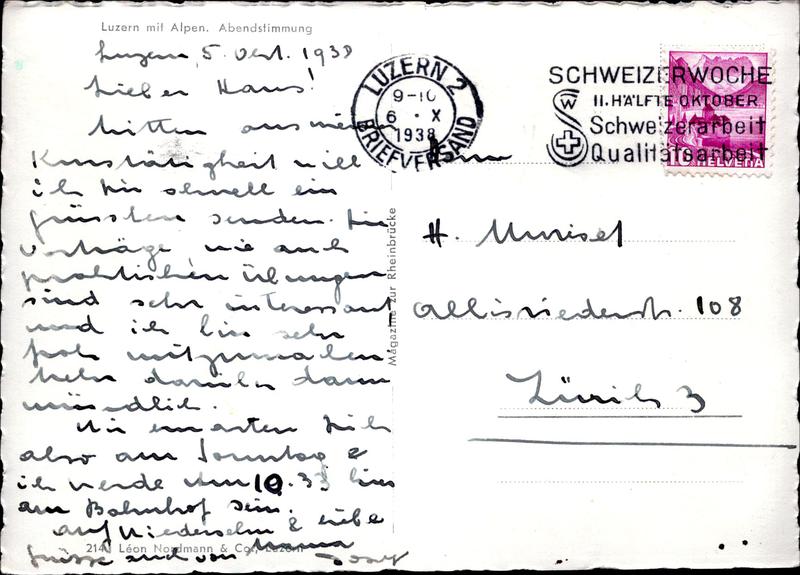 Luzern mit Alpen. Abendstimmung
Luzern, 5. Okt. 1938
Lieber Hans!
Mitten aus meiner
Kurstätigkeit will
ich Dir schnell ein
Grüsschen senden. Die
Vorträge wie auch
praktischen Übungen
sind sehr interessant
und ich bin sehr
froh mitzumachen
Mehr darüber dann
mündlich.
Wir erwarten Dich
also am Sonntag &
ich werde um 10.33 hier
am Bahnhof sein.
auf Wiedersehn & liebe
Grüsse auch von Mama
214 Léon Nordmann & Co., Luzern
Magazine zur Rheinbrücke
LUZERN 2
9-10
6. X
1938
BRIEFVERSAND
SCHWEIZERWOCHE
II. HÄLFTE OKTOBER
Schweizerarbeit
Qualitätsarbeit
SW
10 HELVETIA
Herrn
H. Murisel
Allisriederstr. 108
Zürich 3